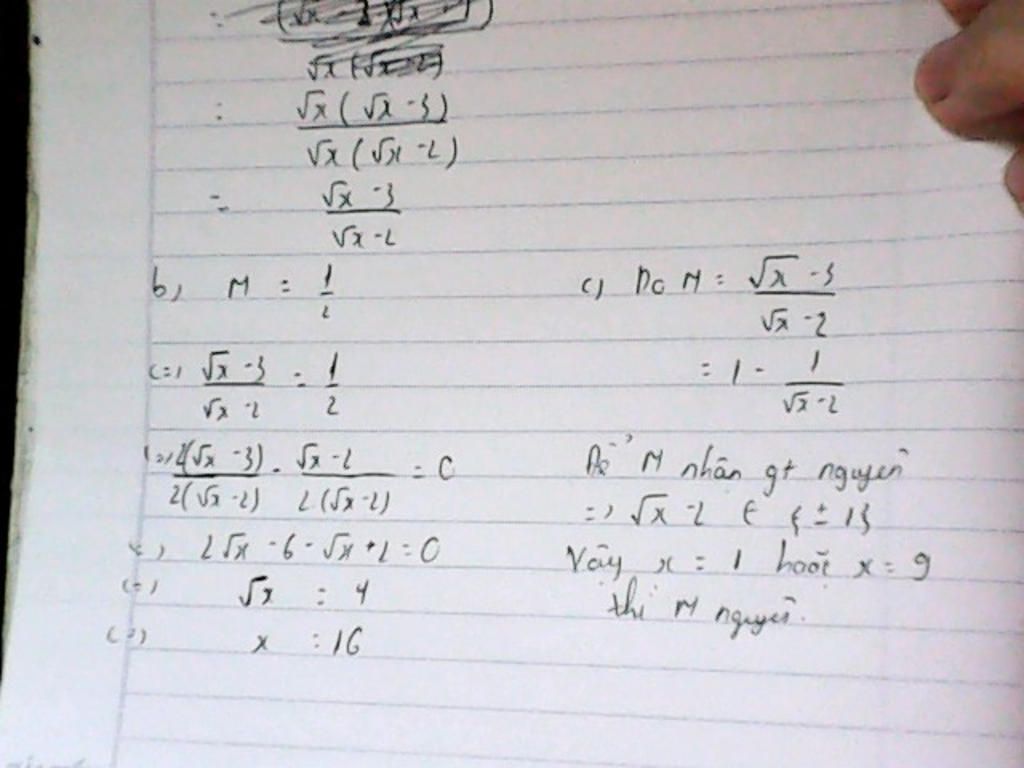 : √x(√x - 3)
√x(√x - 2)
= √x - 3
√x - 2
b, M = 1/2
(=) √x - 3 / √x - 2 = 1/2
(=) 2(√x - 3) / 2(√x - 2) - √x - 2 / 2(√x - 2) = 0
(=) 2√x - 6 - √x + 2 = 0
(=) √x = 4
(=) x = 16
c, Do M = √x - 3
√x - 2
= 1 - 1 / √x - 2
Để M nhân gt nguyên
=) √x - 2 ∈ {±1}
Vậy x = 1 hoặc x = 9
thì M nguyên.